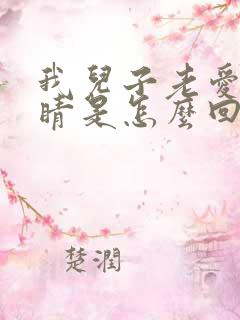 我兒子老愛
睛是怎麼回
楚潤